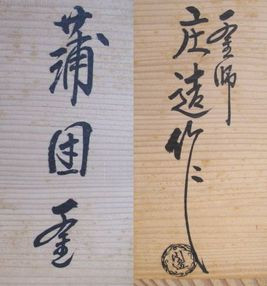 蒲団釜
釜師
庄造作